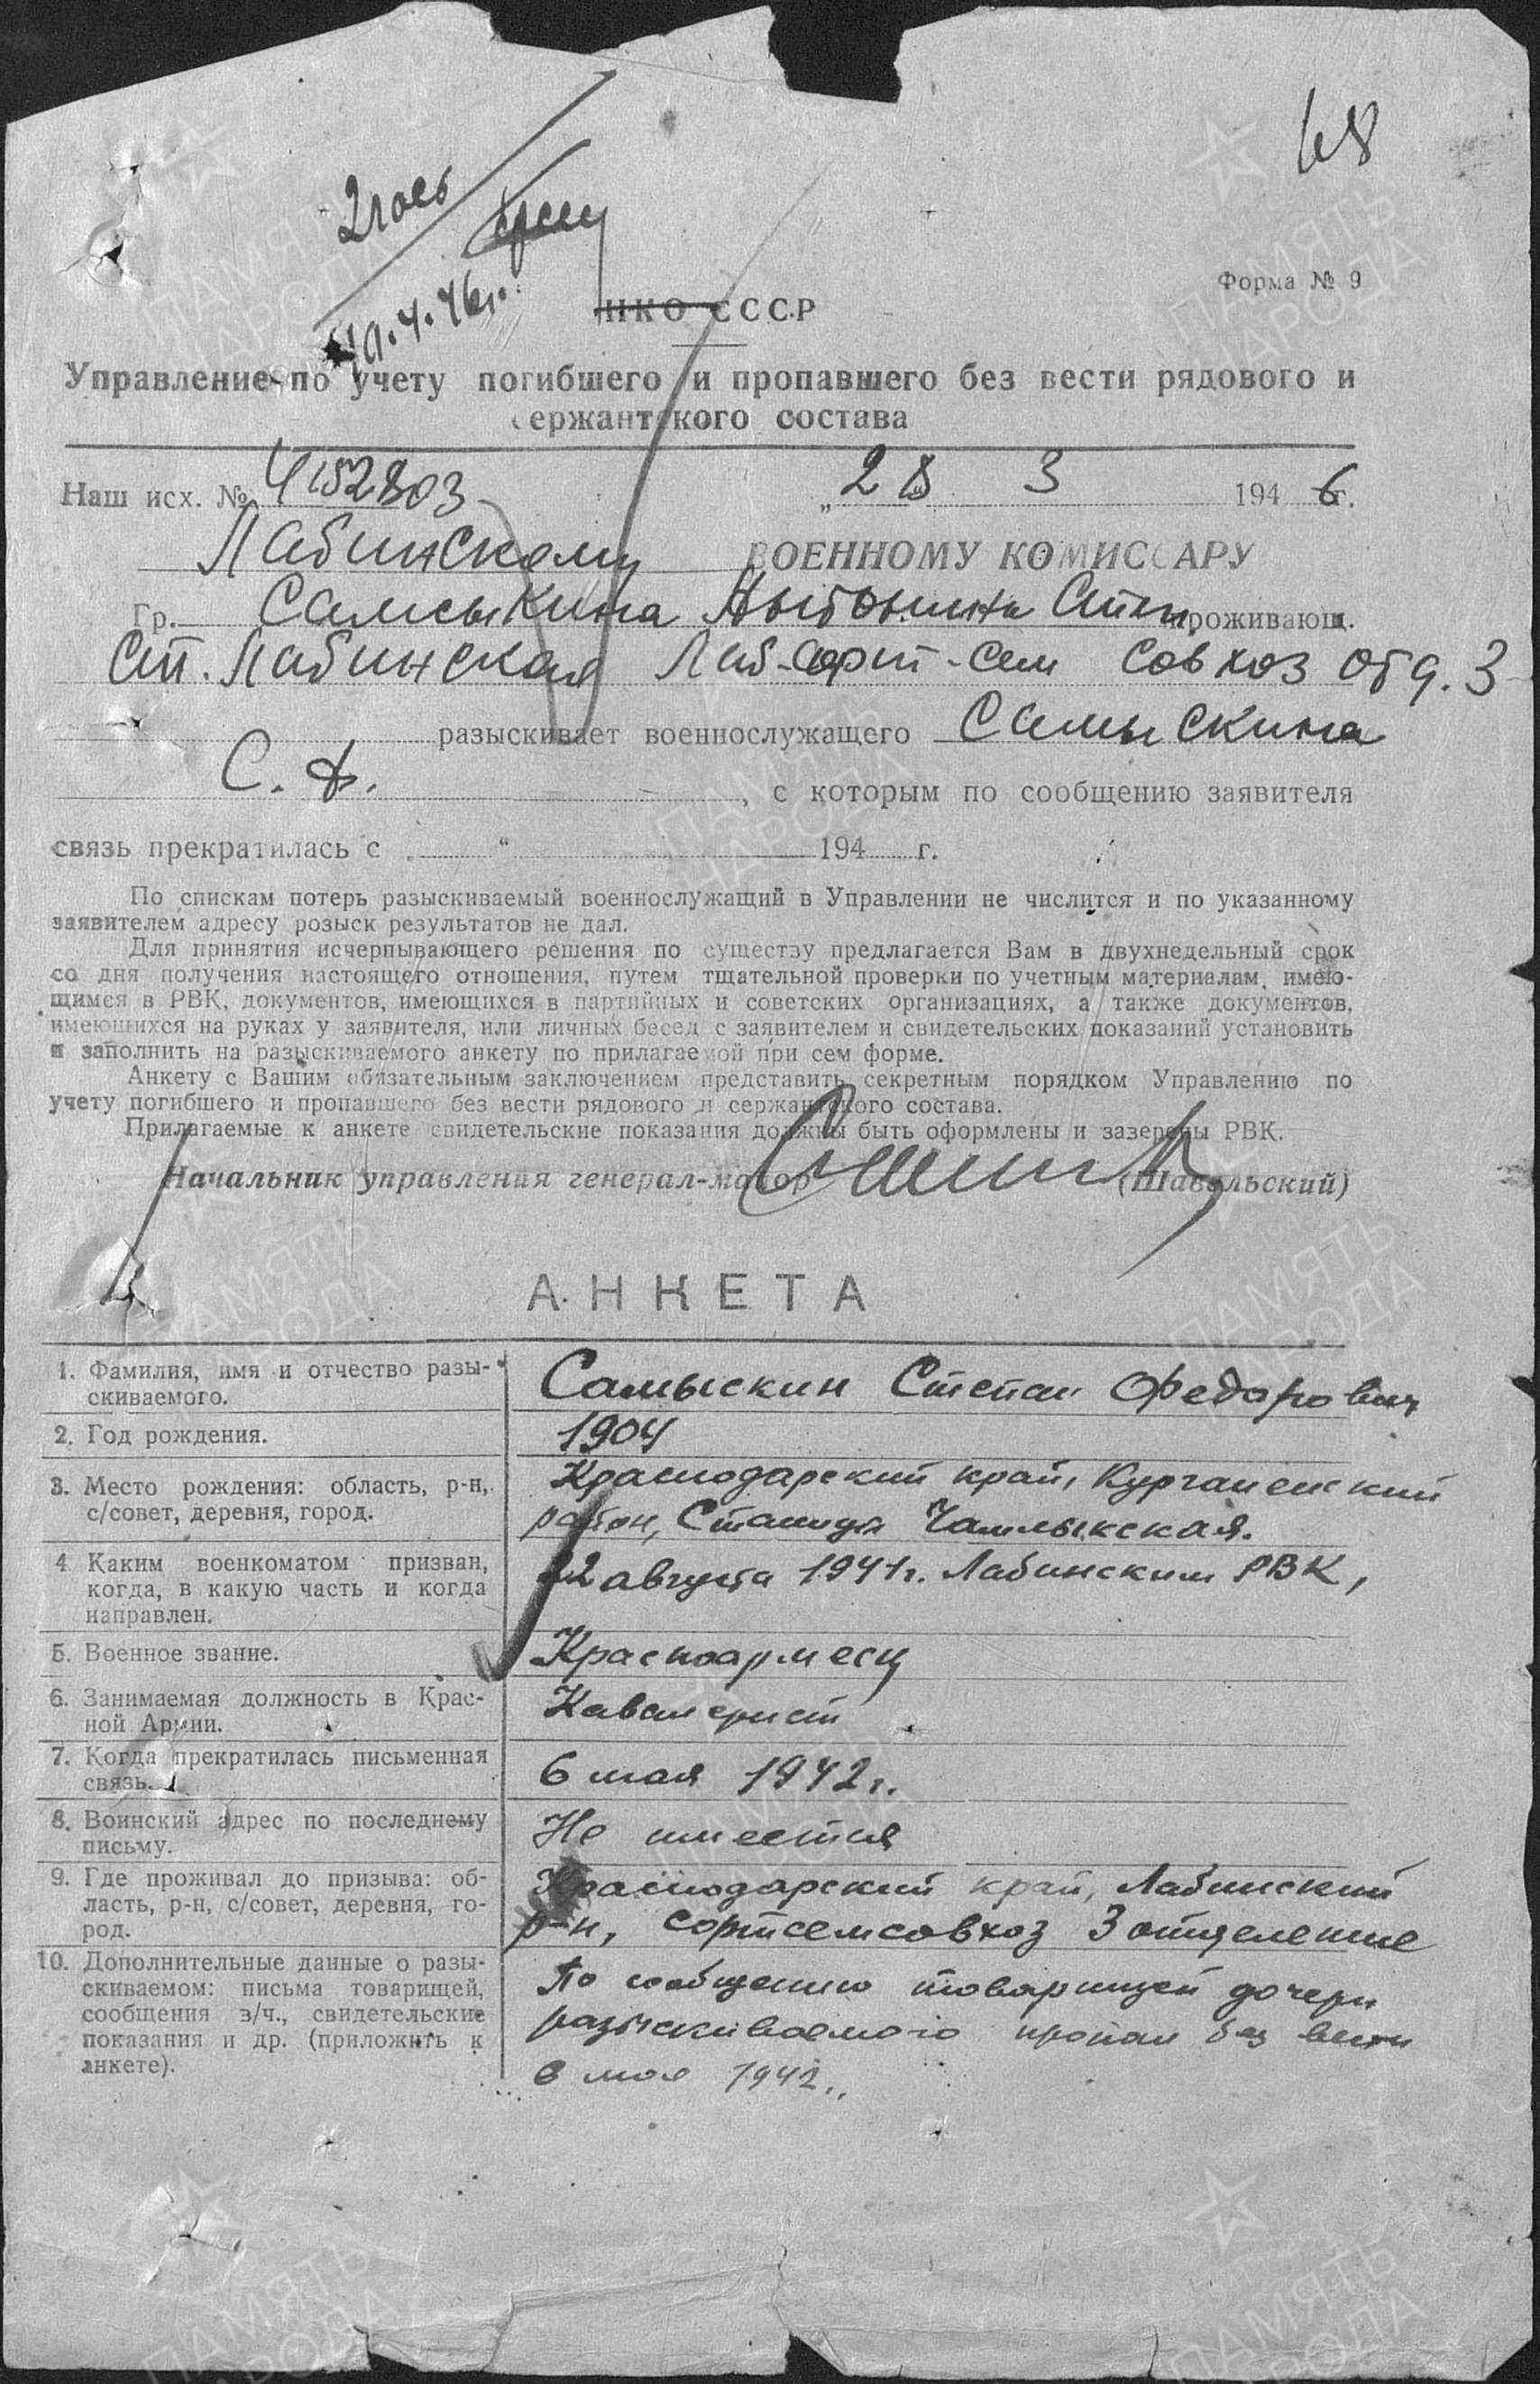 68
Форма № 9
10.4.46г.
НКО СССР
Управление по учету погибшего и пропавшего без вести рядового и
сержантского состава
Наш исх. № 4152803 „28 3 1946г.
Лабинскому ВОЕННОМУ КОМИССАРУ
Гр. Самыскина проживающ.
Ст. Лабинская Лаб-сорт-сем совхоз отд. 3
разыскивает военнослужащего Самыскина
С. Ф. , с которым по сообщению заявителя
связь прекратилась с „ “ 194 г.
По спискам потерь разыскиваемый военнослужащий в Управлении не числится и по указанному
заявителем адресу розыск результатов не дал.
Для принятия исчерпывающего решения по существу предлагается Вам в двухнедельный срок
со дня получения настоящего отношения, путем тщательной проверки по учетным материалам, имею-
щимся в РВК, документов, имеющихся в партийных и советских организациях, а также документов,
имеющихся на руках у заявителя, или личных бесед с заявителем и свидетельских показаний установить
и заполнить на разыскиваемого анкету по прилагаемой при сем форме.
Анкету с Вашим обязательным заключением представить секретным порядком Управлению по
учету погибшего и пропавшего без вести рядового и сержантского состава.
Прилагаемые к анкете свидетельские показания должны быть оформлены и заверены РВК.
Начальник управления генерал-майор (Шавельский)
АНКЕТА
1. Фамилия, имя и отчество разы-
скиваемого.
Самыскин Степан Федорович
2. Год рождения.
1904
3. Место рождения: область, р-н,
с/совет, деревня, город.
Краснодарский край, Курганенский
район, Станица Чамлыкская.
4. Каким военкоматом призван,
когда, в какую часть и когда
направлен.
22 августа 1941г. Лабинским РВК,
5. Военное звание.
Красноармеец
6. Занимаемая должность в Крас-
ной Армии.
Кавалерист
7. Когда прекратилась письменная
связь.
6 мая 1942г.
8. Воинский адрес по последнему
письму.
Не имеется
9. Где проживал до призыва: об-
ласть, р-н, с/совет, деревня, го-
род.
Краснодарский край, Лабинский
р-н, сортсемсовхоз 3 отделение
10. Дополнительные данные о разы-
скиваемом: письма товарищей,
сообщения в/ч., свидетельские
показания и др. (приложить к
анкете).
По сообщению товарищей дочери
разыскиваемого пропал без вести
в мае 1942г.